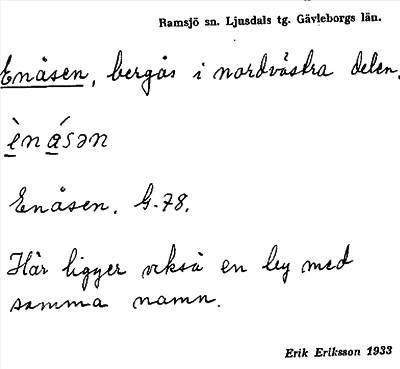 Ramsjö sn. Ljusdals tg. Gävleborgs län.
Enåsen, bergås i nordvästra delen.
è̲n á̲sən
Enåsen. G.78.
Här ligger också en by med
samma namn.
Erik Eriksson 1933